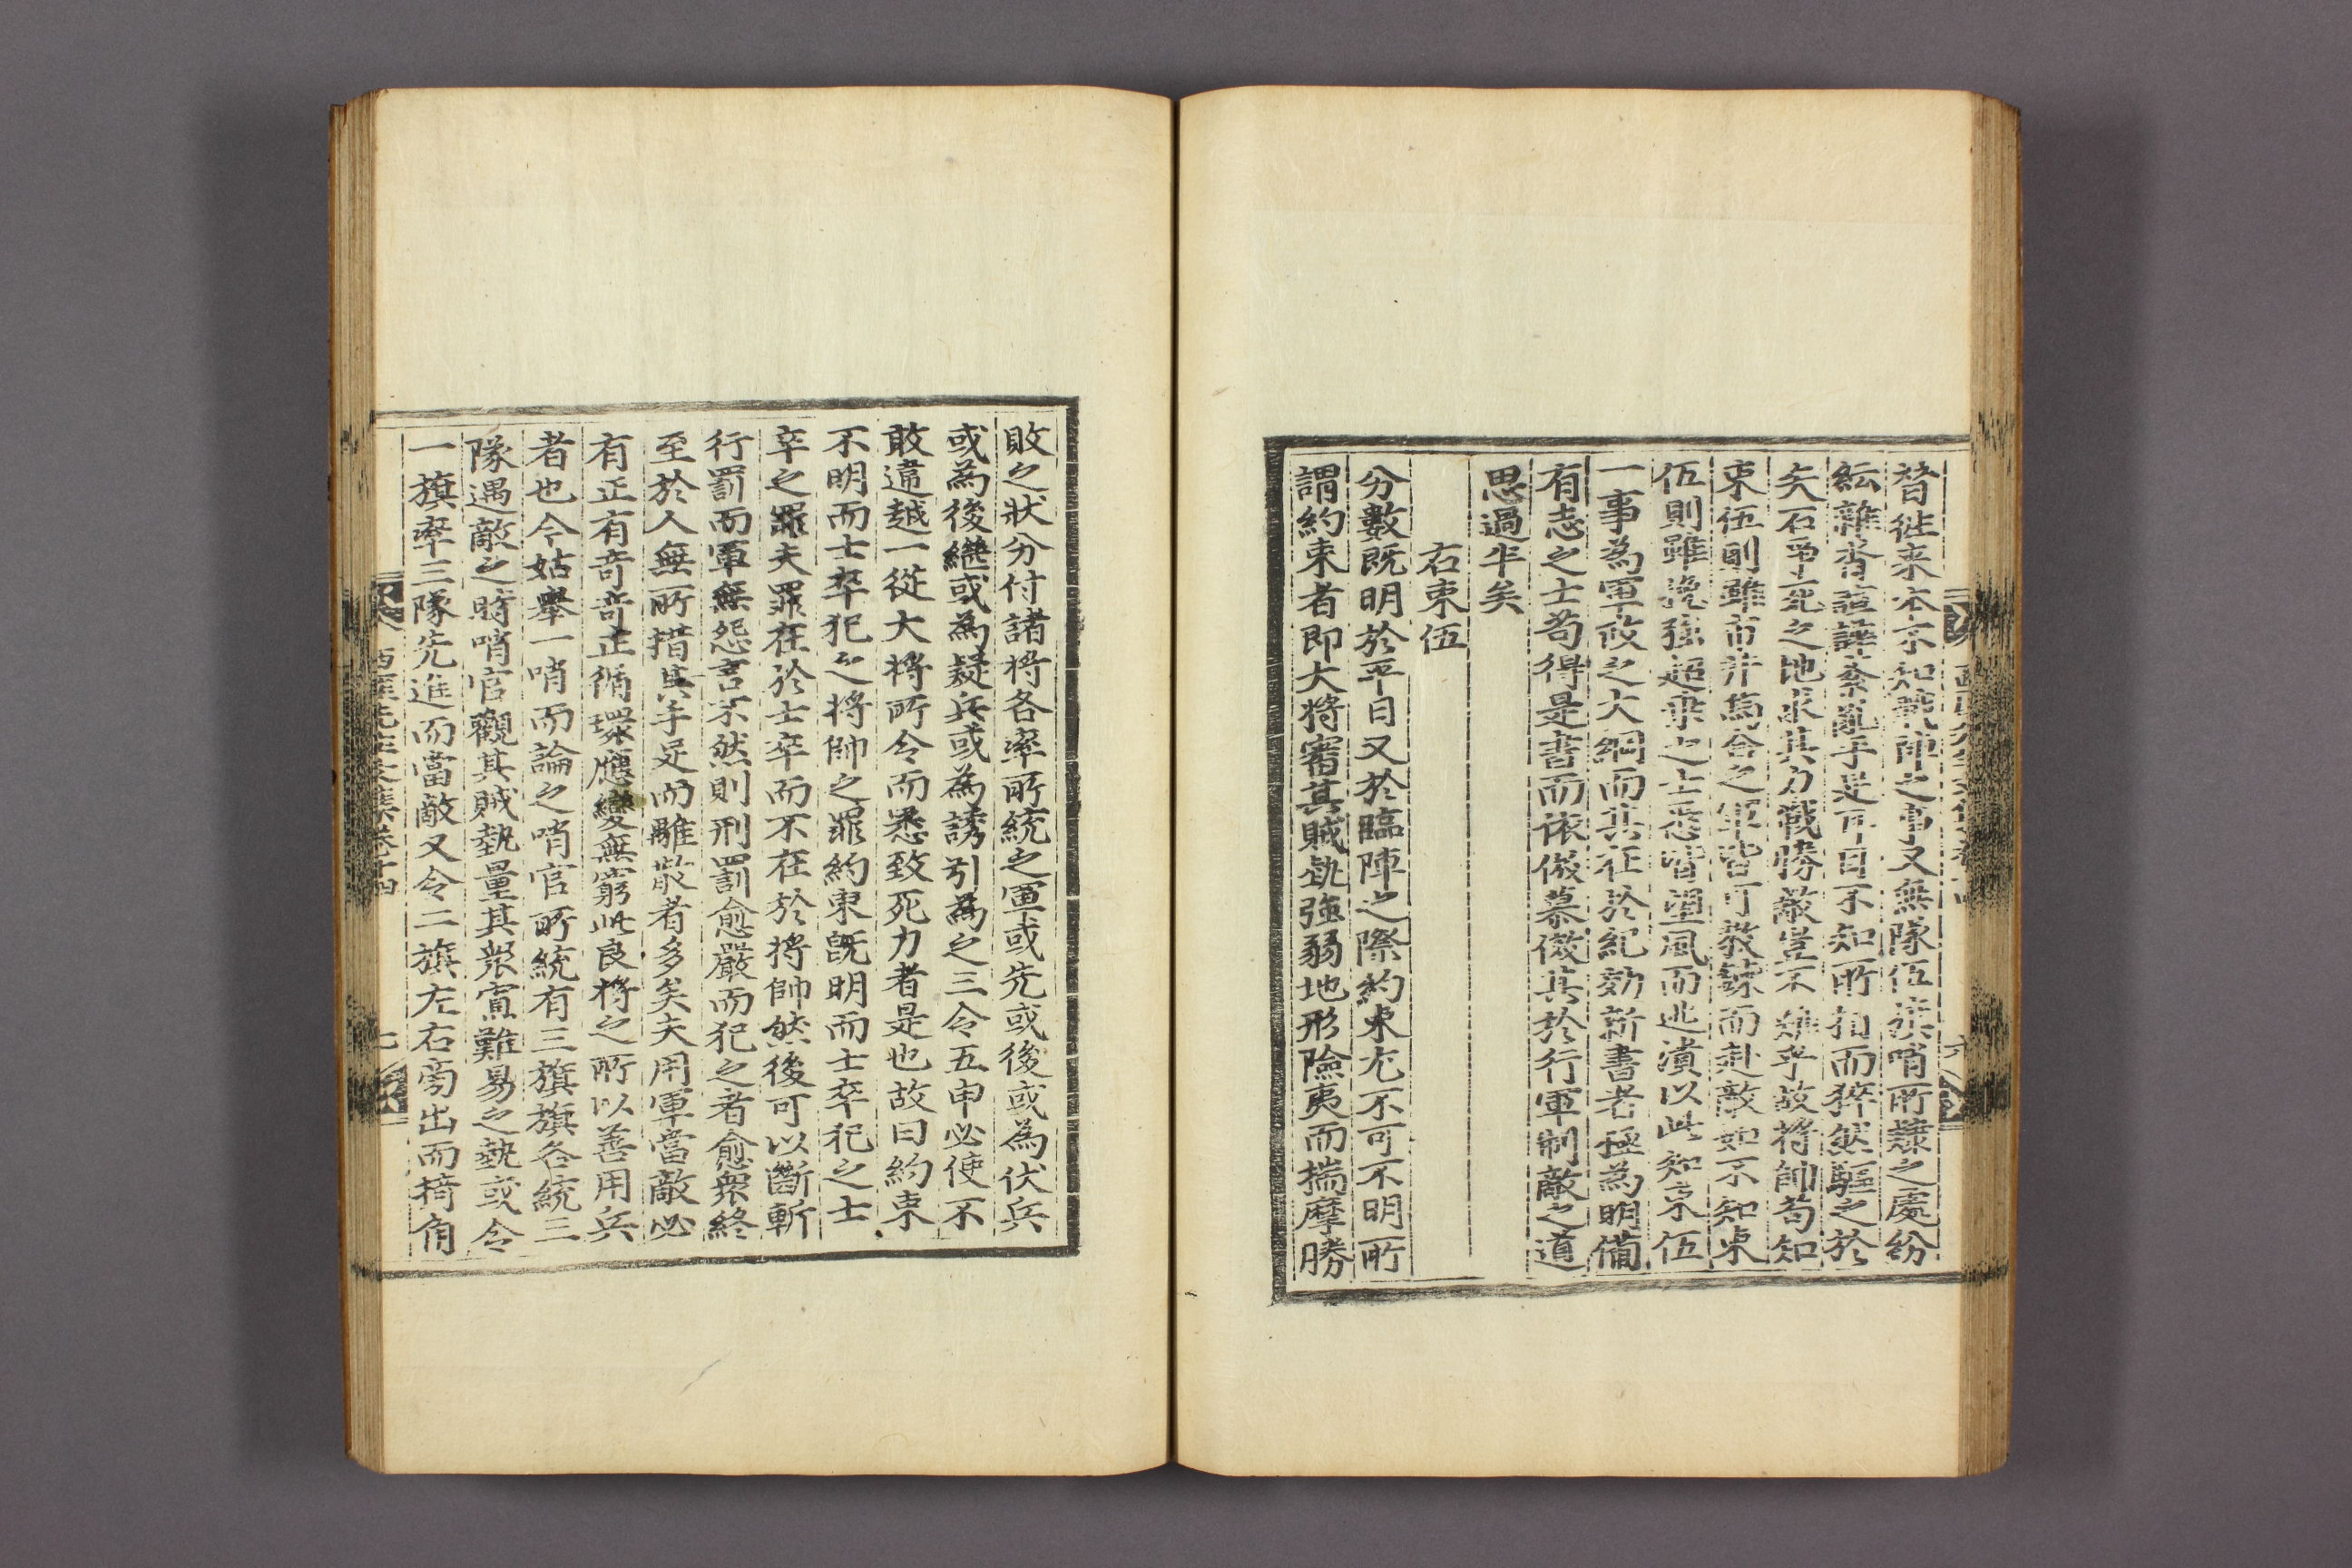 替徃來本不知戰陣之事又無隊伍旗哨所隷之處紛
紜雜沓諠譁紊亂手足耳目不知所措而猝然驅之於
矢石爭死之地求其力戰勝敵豈不難乎故將帥苟知
束伍則雖市井烏合之軍皆可敎鍊而赴敵如不知束
伍則雖挽强超乘之士悉皆望風而逃潰以此知束伍
一事為軍政之大綱而其在於紀効新書者極為明備
有志之士苟得是書而依倣慕傚其於行軍制敵之道
思過半矣
右束伍
分數旣明於平日又於臨陣之際約束尤不可不明所
謂約束者即大將審其賊埶强弱地形險夷而揣摩勝
敗之狀分付諸將各率所統之軍或先或後或為伏兵
或為後繼或為疑兵或為誘引為之三令五申必使不
敢違越一從大將所令而悉致死力者是也故曰約束
不明而士卒犯之將帥之罪約束旣明而士卒犯之士
卒之罪夫罪在於士卒而不在於將帥然後可以斷斬
行罰而軍無怨言不然則刑罰愈嚴而犯之者愈衆終
至於人無所措其手足而離散者多矣夫用軍當敵必
有正有奇奇正循環應變無窮此良將之所以善用兵
者也今姑擧一哨而論之哨官所統有三旗旗各統三
隊遇敵之時哨官觀其賊埶量其衆寡難易之埶或令
一旗率三隊先進而當敵又令二旗左右旁出而掎角
西厓先生文集卷十四
七